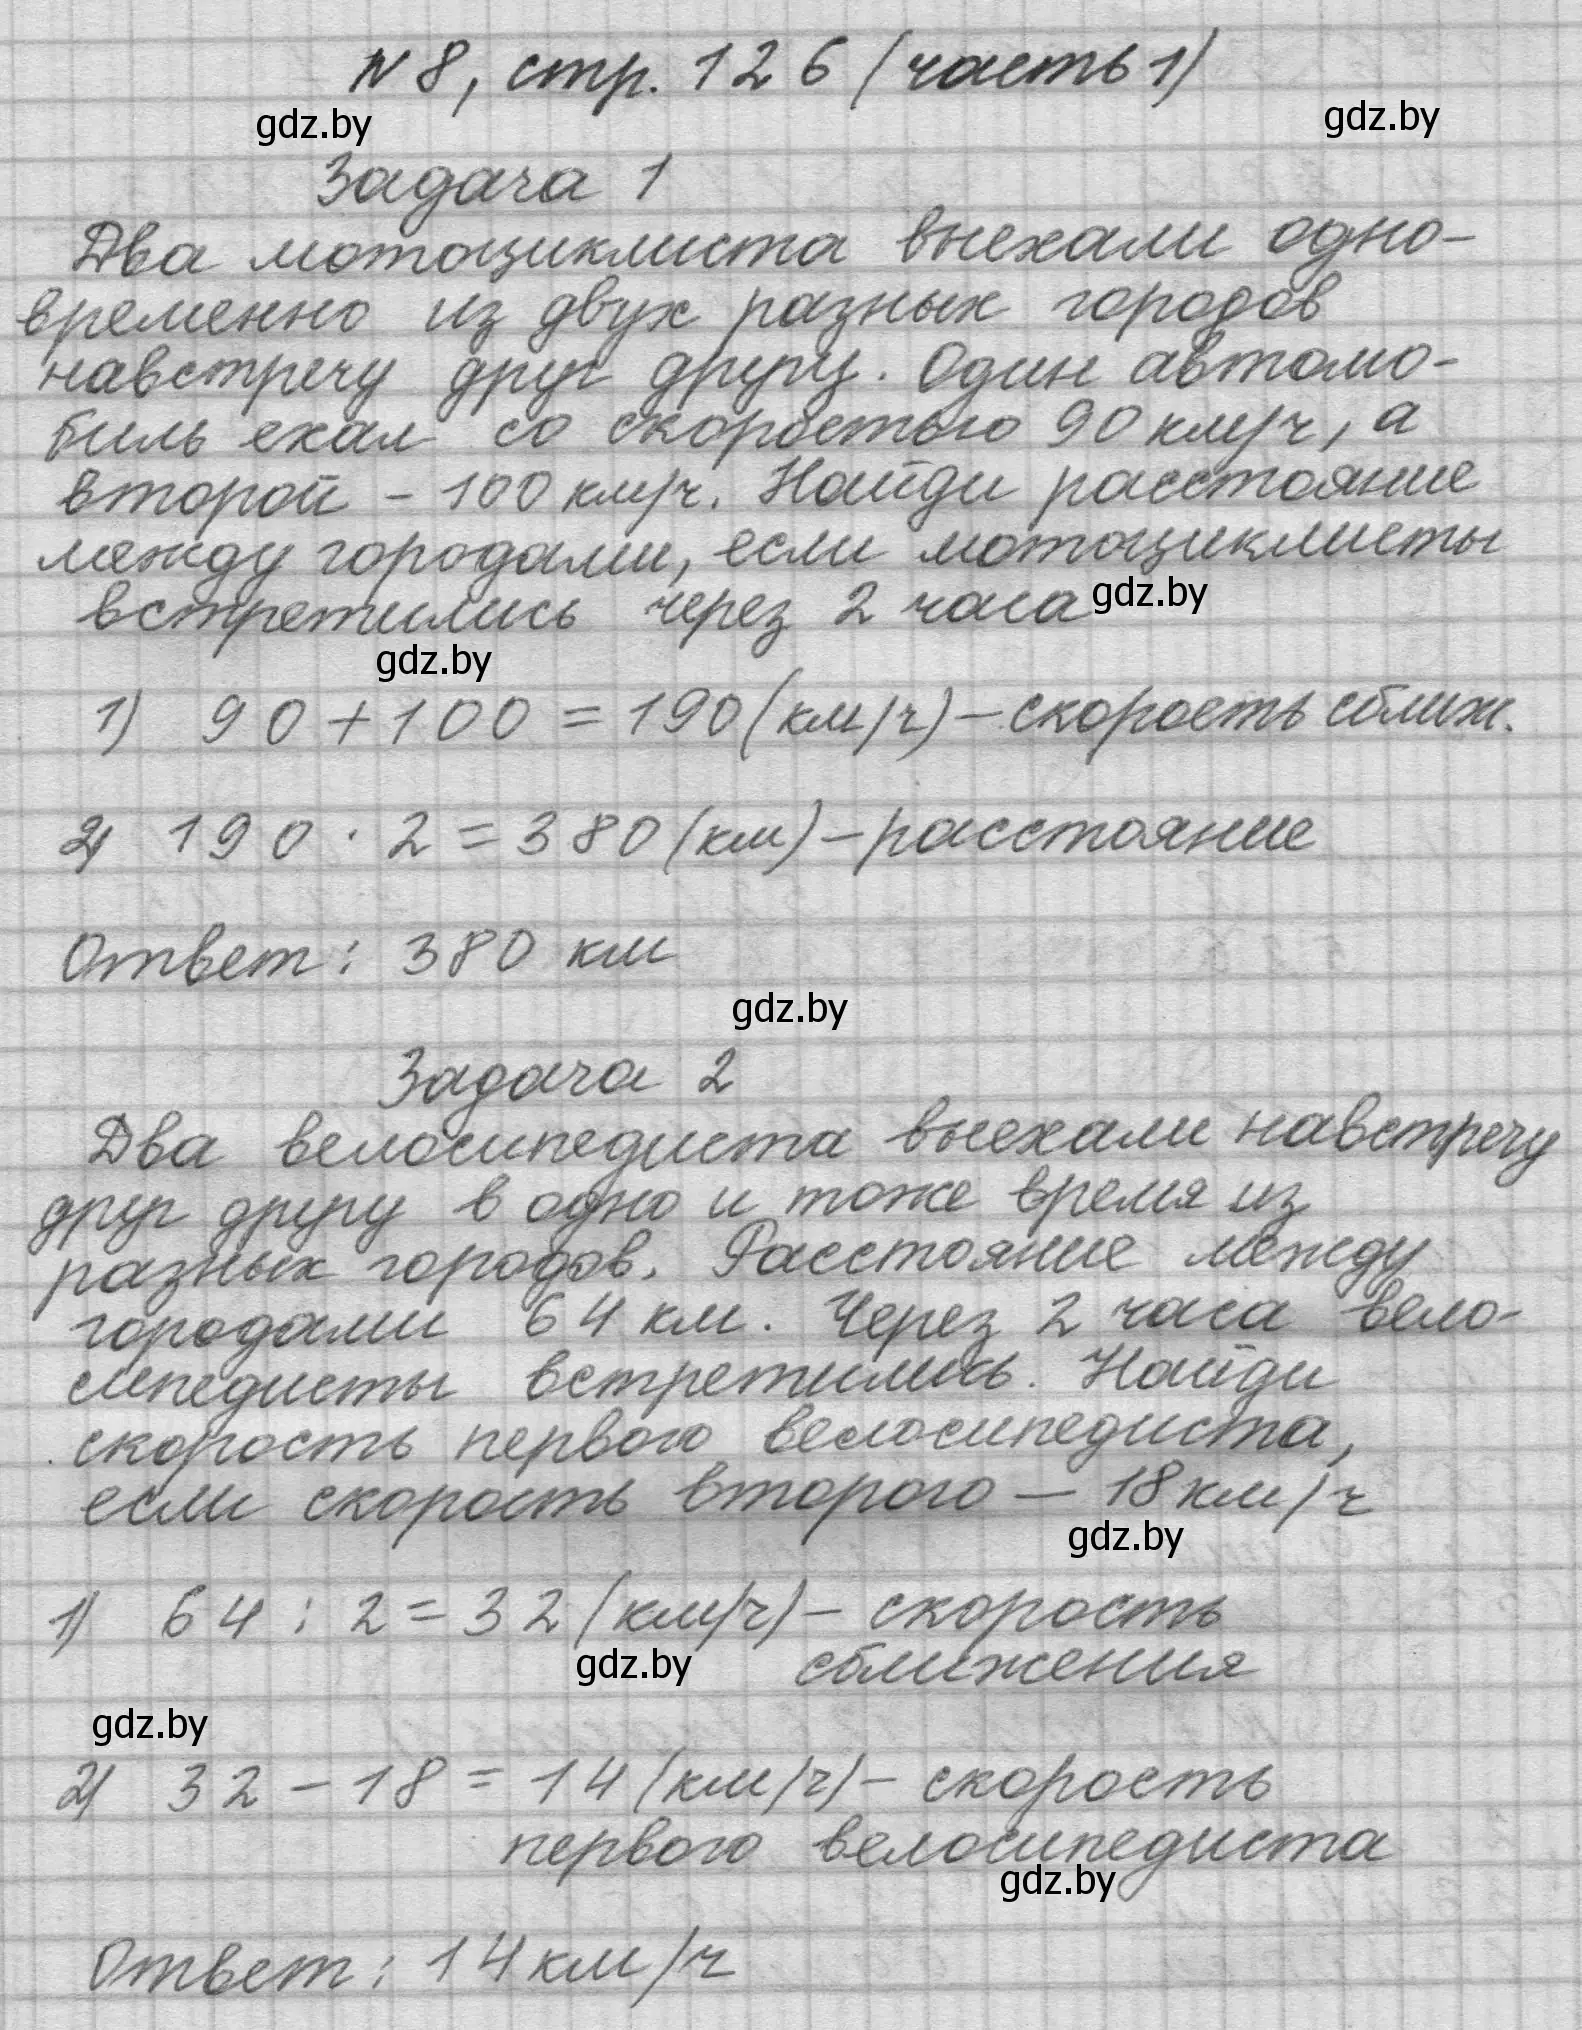 N 8, стр. 126 (часть 1)
gdz.by
gdz.by
Задача 1
Два мотоциклиста выехали одно-
временно из двух разных городов
навстречу друг другу. Один автомо-
биль ехал со скоростью 90 км/ч, а
второй - 100 км/ч. Найди расстояние
между городами, если мотоциклисты
встретились через 2 часа
gdz.by
gdz.by
1) 90 + 100 = 190 (км/ч) - скорость сближ.
2) 190 · 2 = 380 (км) - расстояние
Ответ: 380 км
gdz.by
Задача 2
Два велосипедиста выехали навстречу
друг другу в одно и тоже время из
разных городов. Расстояние между
городами 64 км. Через 2 часа вело-
сипедисты встретились. Найди
скорость первого велосипедиста,
если скорость второго — 18 км/ч
gdz.by
1) 64 : 2 = 32 (км/ч) - скорость
сближения
gdz.by
gdz.by
2) 32 - 18 = 14 (км/ч) - скорость
первого велосипедиста
gdz.by
Ответ: 14 км/ч